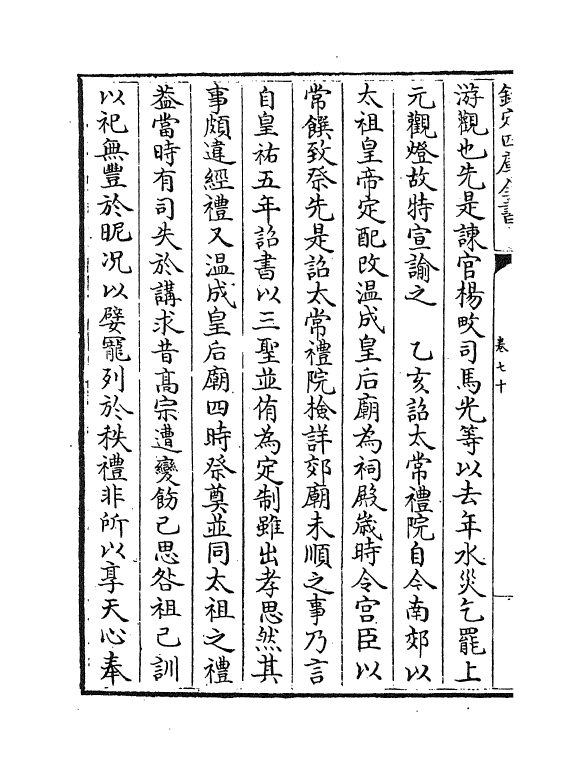 欽定四庫全書
卷七十
游觀也先是諫官楊畋司馬光等以去年水災乞罷上
元觀燈故特宣諭之　乙亥詔太常禮院自今南郊以
太祖皇帝定配改温成皇后廟為祠殿歲時令宫臣以
常饌致祭先是詔太常禮院檢詳郊廟未順之事乃言
自皇祐五年詔書以三聖並侑為定制雖出孝思然其
事頗違經禮又温成皇后廟四時祭奠並同太祖之禮
葢當時有司失於講求昔髙宗遭變飭己思咎祖己訓
以祀無豐於昵况以嬖寵列於秩禮非所以享天心奉